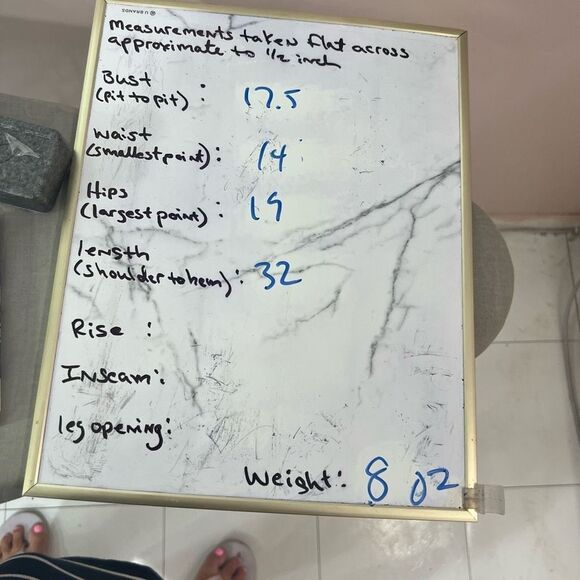 U BRANDS
Measurements taken flat across
approximate to 1/2 inch
Bust
(pit to pit) : 17.5
Waist
(smallest point) : 14
Hips
(largest point) : 19
length
(shoulder to hem) : 32
Rise :
Inseam :
leg opening :
Weight : 8 oz